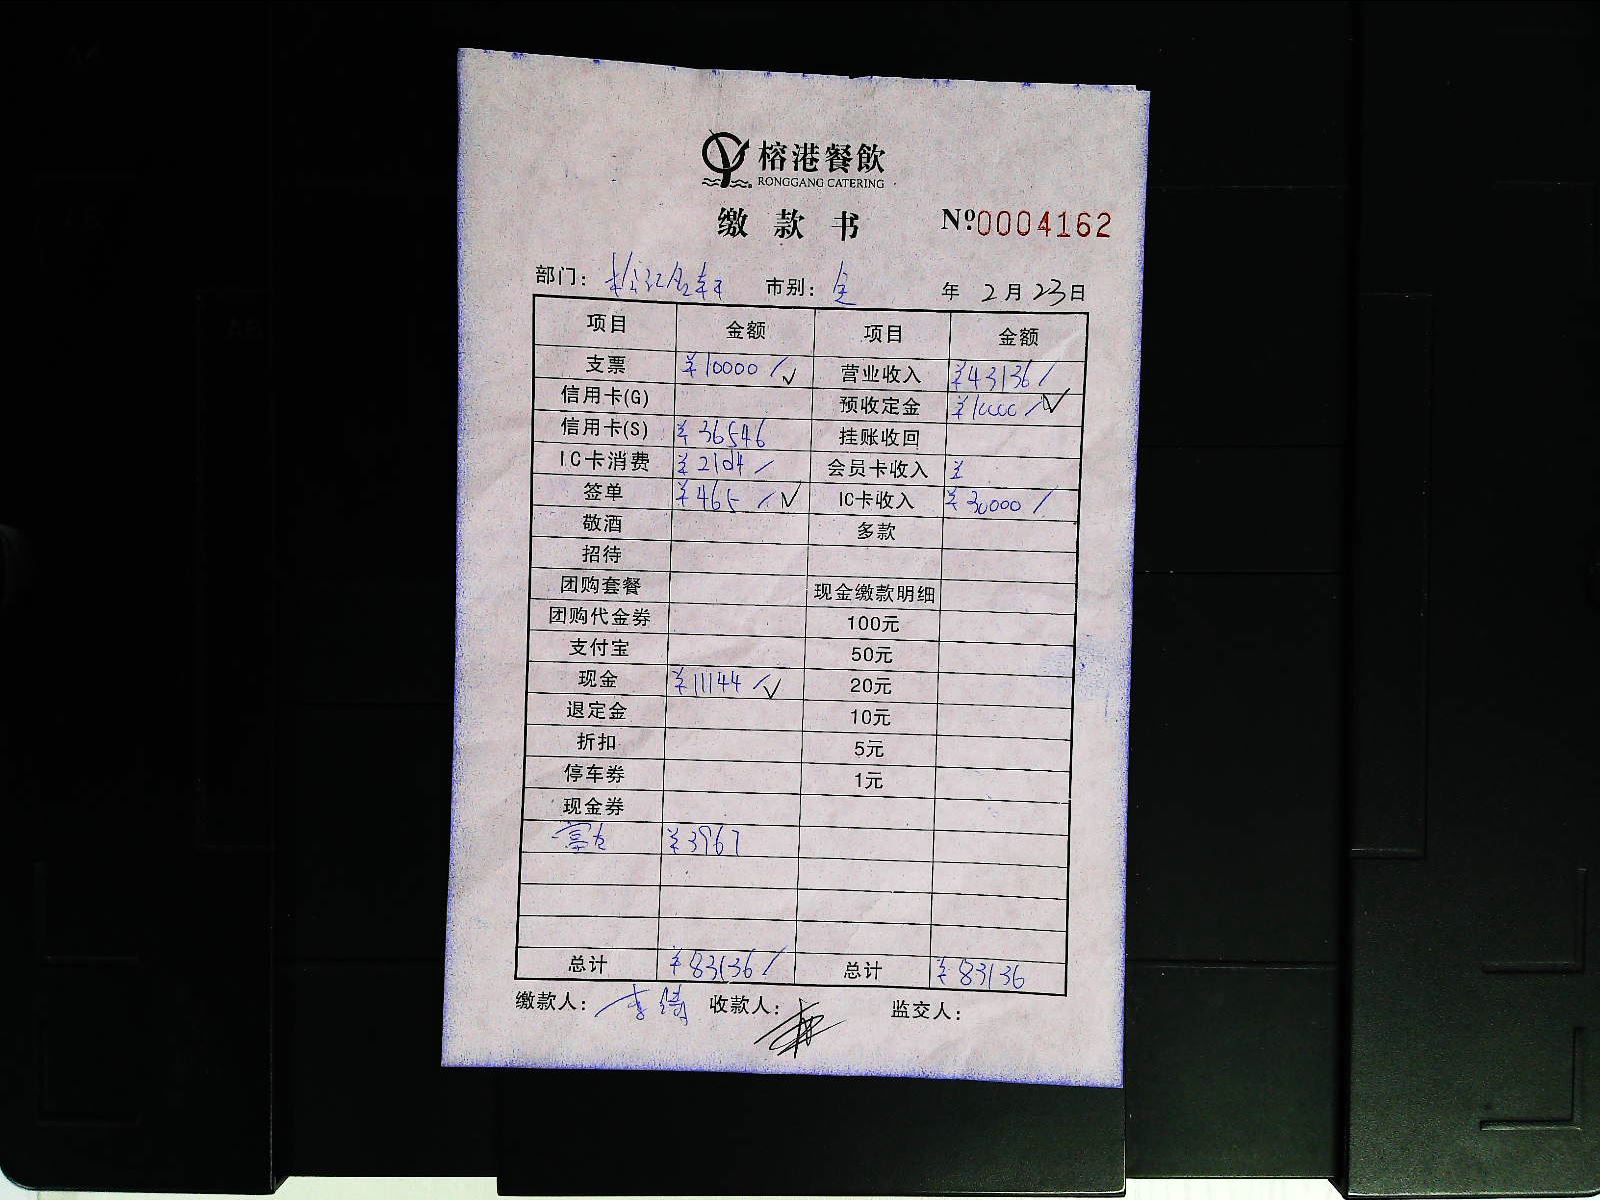 榕港餐飲
RONGGANG CATERING
缴款书 Nº:0004162
部门: 市别: 年 2月23日
项目 金额 项目 金额
支票 ¥10000 / √ 营业收入 ¥43136 /
信用卡(G) 预收定金 ¥10000 / √
信用卡(S) ¥36546 挂账收回
IC卡消费 ¥2104 / 会员卡收入
签单 ¥465 / √ IC卡收入 ¥30000 /
敬酒 多款
招待
团购套餐 现金缴款明细
团购代金券 100元
支付宝 50元
现金 ¥11144 / √ 20元
退定金 10元
折扣 5元
停车券 1元
现金券
¥3967
总计 ¥83136 / 总计 ¥83136
缴款人: 李 收款人: 监交人: